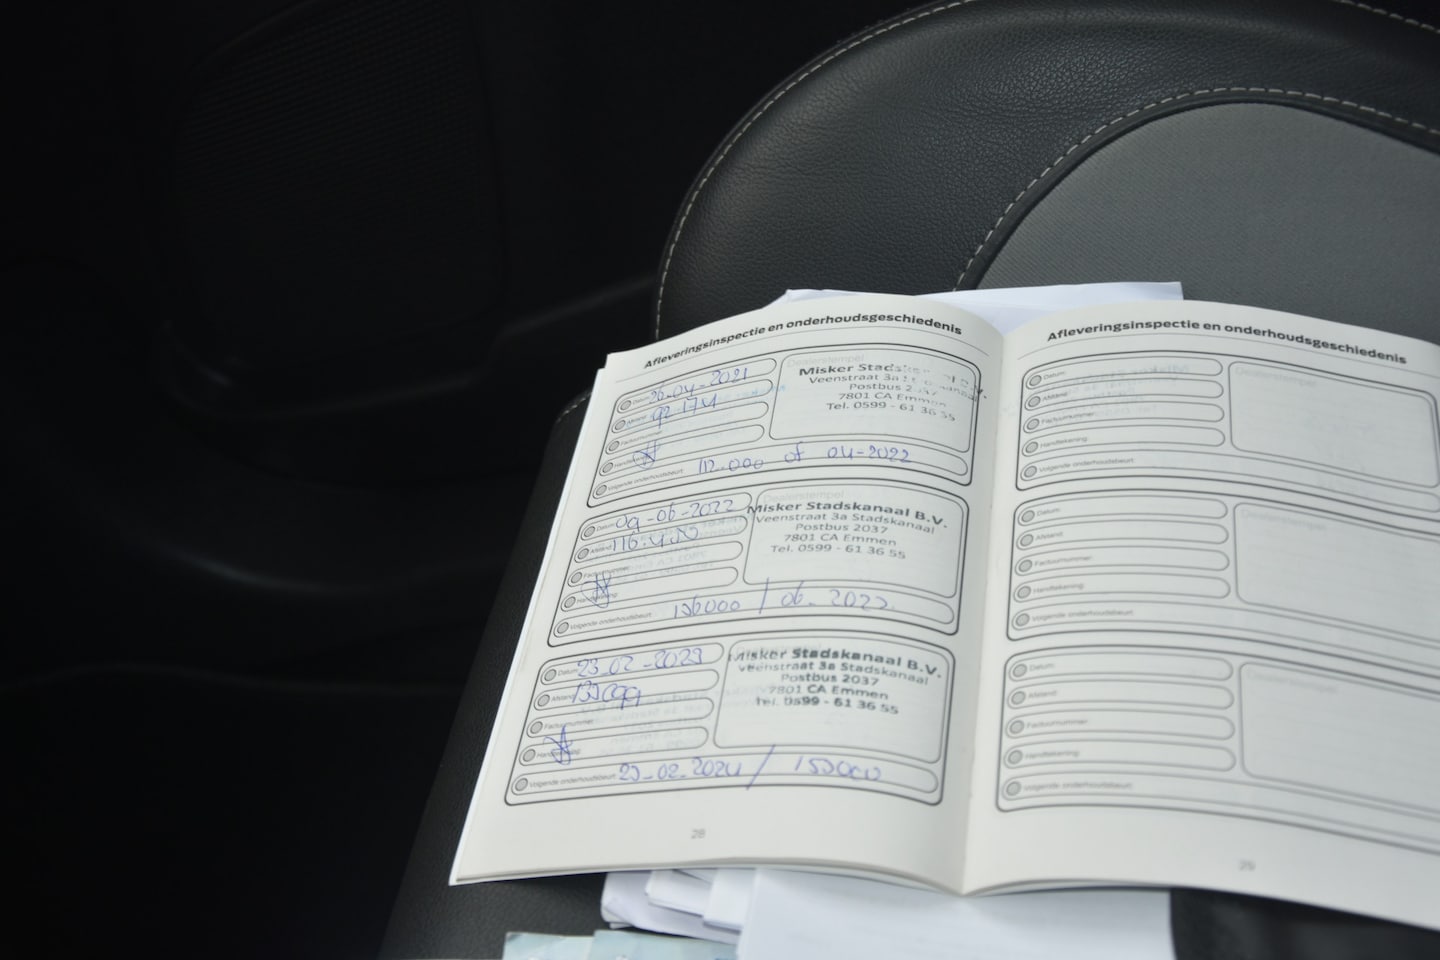 Afleveringsinspectie en onderhoudsgeschiedenis
Datum: 26-04-2021
Afstand: 92.174
Factuurnummer:
Handtekening:
Volgende onderhoudsbeurt: 112.000 of 04-2022
Dealerstempel
Misker Stadskanaal B.V.
Veenstraat 3a Stadskanaal
Postbus 2037
7801 CA Emmen
Tel. 0599 - 61 36 55
Datum: 09-06-2022
Afstand:
Factuurnummer:
Handtekening:
Volgende onderhoudsbeurt: / 06-2023
Dealerstempel
Misker Stadskanaal B.V.
Veenstraat 3a Stadskanaal
Postbus 2037
7801 CA Emmen
Tel. 0599 - 61 36 55
Datum: 23-02-2023
Afstand:
Factuurnummer:
Handtekening:
Volgende onderhoudsbeurt: 23-02-2024 /
Misker Stadskanaal B.V.
Veenstraat 3a Stadskanaal
Postbus 2037
7801 CA Emmen
Tel. 0599 - 61 36 55
28
Afleveringsinspectie en onderhoudsgeschiedenis
Datum:
Afstand:
Factuurnummer:
Handtekening:
Volgende onderhoudsbeurt:
Dealerstempel
Datum:
Afstand:
Factuurnummer:
Handtekening:
Volgende onderhoudsbeurt:
Dealerstempel
Datum:
Afstand:
Factuurnummer:
Handtekening:
Volgende onderhoudsbeurt:
Dealerstempel
29